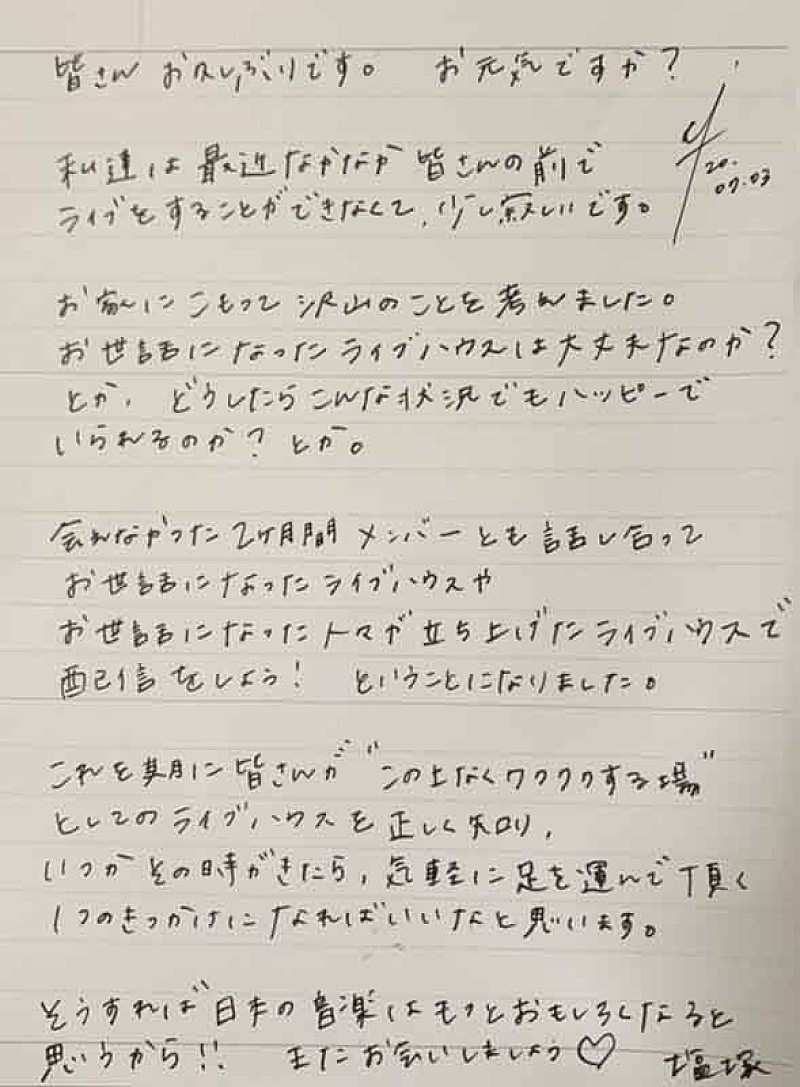 皆さん お久しぶりです。 お元気ですか?
20.
07.03
私達は最近なかなか皆さんの前で
ライブをすることができなくて、少し寂しいです。
お家にこもって沢山のことを考えました。
お世話になったライブハウスは大丈夫なのか?
とか、どうしたらこんな状況でもハッピーで
いられるのか? とか。
会えなかった2ヶ月間 メンバーとも話し合って
お世話になったライブハウスや
お世話になったトマが立ち上げたライブハウスで
配信をしよう! ということになりました。
これを期に皆さんが“この上なくワクワクする場”
としてのライブハウスを正しく知り、
いつかその時がきたら、気軽に足を運んで頂く
1つのきっかけになればいいなと思います。
そうすれば日本の音楽はもっとおもしろくなると
思うから!! またお会いしましょう♡ 塩塚